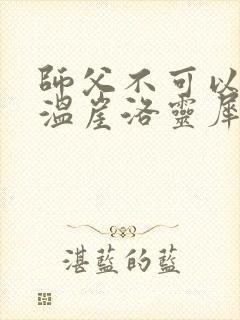 師父不可以
溫崖洛靈犀
湛藍的藍